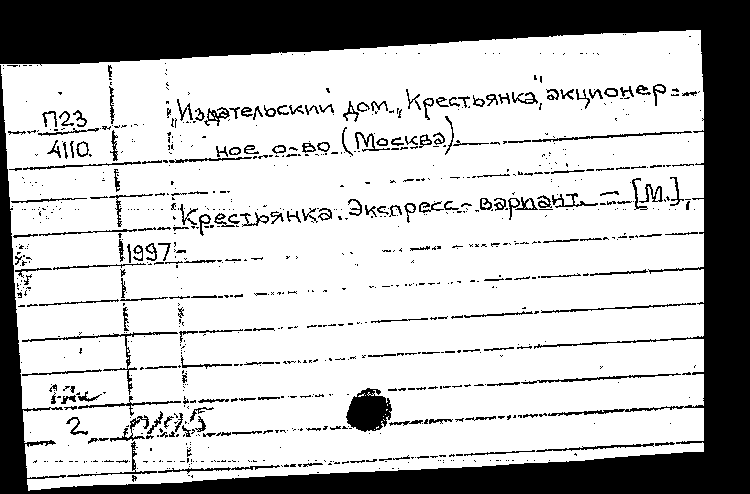 П23 „Издательский дом „Крестьянка", акционер=
4110. ное о-во (Москва).
Крестьянка. Экспресс-вариант. — [М.],
1997 -
2